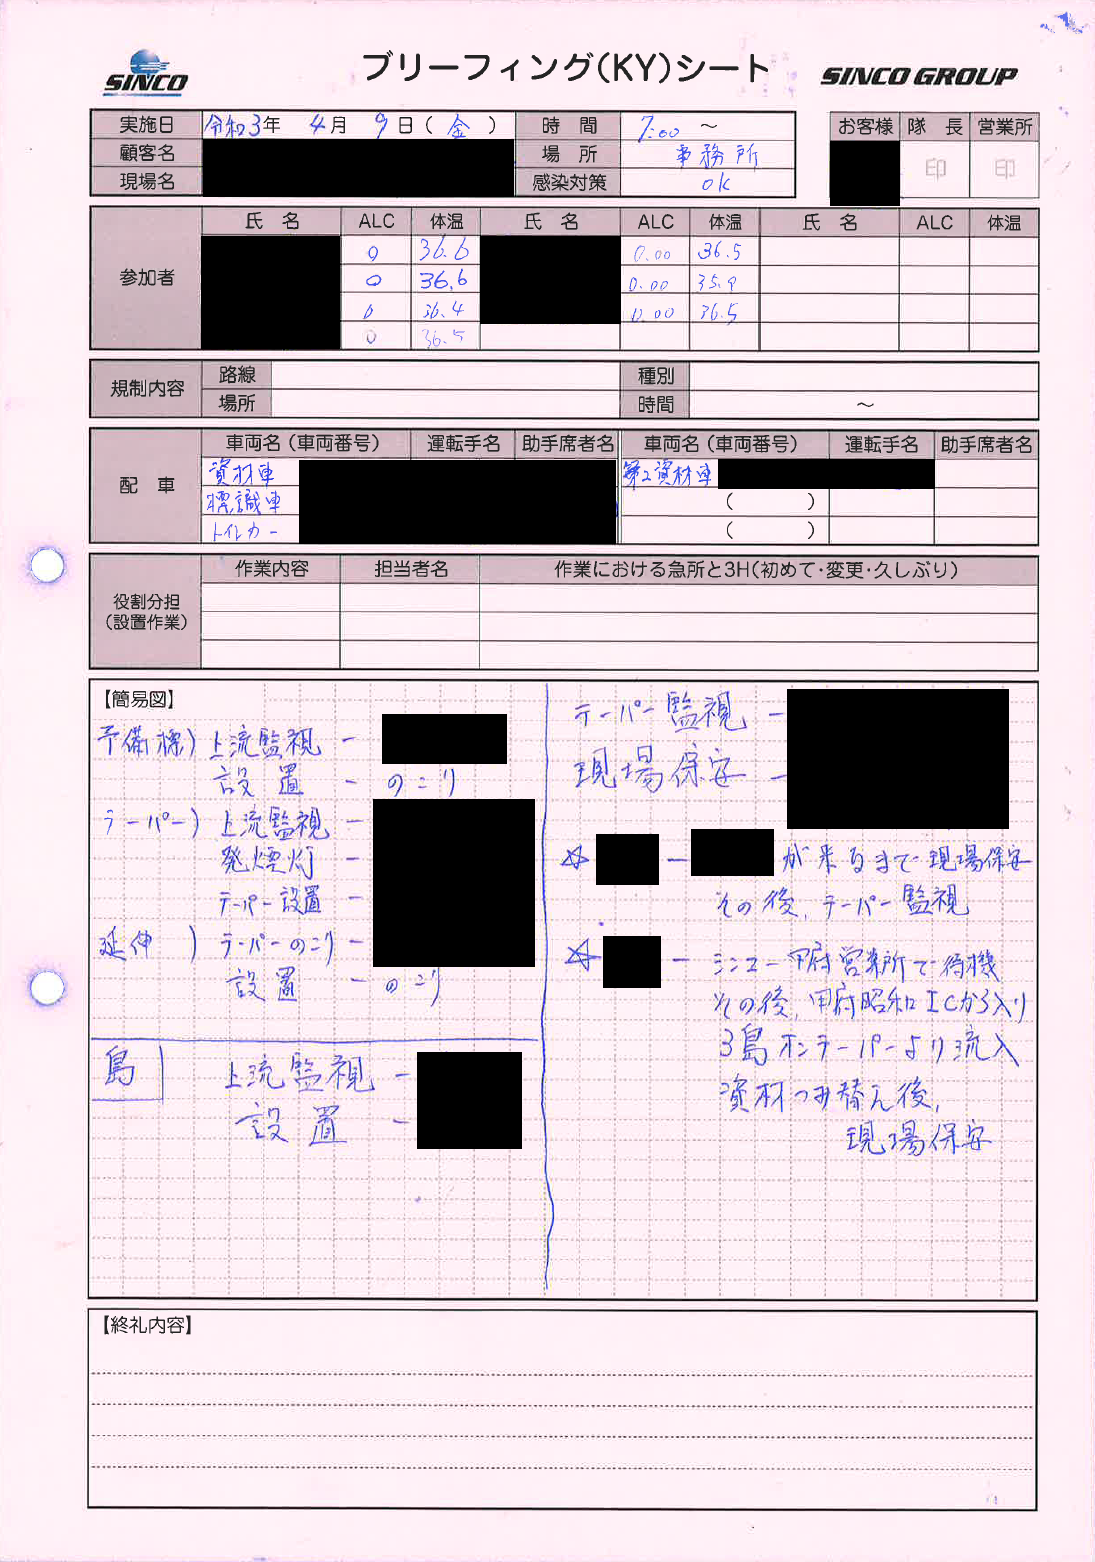 SINCO
ブリーフィング(KY)シート
SINCO GROUP
実施日 令和3年 4月 9日( 金 ) 時 間 7:00 ～
お客様 隊 長 営業所
顧客名 場 所 事務所
印 印
現場名 感染対策 OK
参加者
氏 名 ALC 体温 氏 名 ALC 体温 氏 名 ALC 体温
0 36.6 0.00 36.5
0 36.6 0.00 35.9
0 36.4 0.00 36.5
0 36.5
規制内容
路線 種別
場所 時間 ～
配 車
車両名(車両番号) 運転手名 助手席者名 車両名(車両番号) 運転手名 助手席者名
資材車 第2資材車
標識車 ( )
トイレカー ( )
役割分担
(設置作業)
作業内容 担当者名 作業における急所と3H(初めて・変更・久しぶり)
【簡易図】
予備標) 上流監視 -
設置 - のこり
テーパー) 上流監視 -
発煙灯 -
テーパー設置 -
延伸 ) テーパーのこり -
設置 - のこり
島 上流監視 -
設置 -
テーパー監視 -
現場保安 -
☆ - が来るまで現場保安
その後、テーパー監視
☆ - シンコー甲府営業所で待機
その後、甲府昭和ICから入り
3島オンテーパーより流入
資材つみ替え後、
現場保安
【終礼内容】